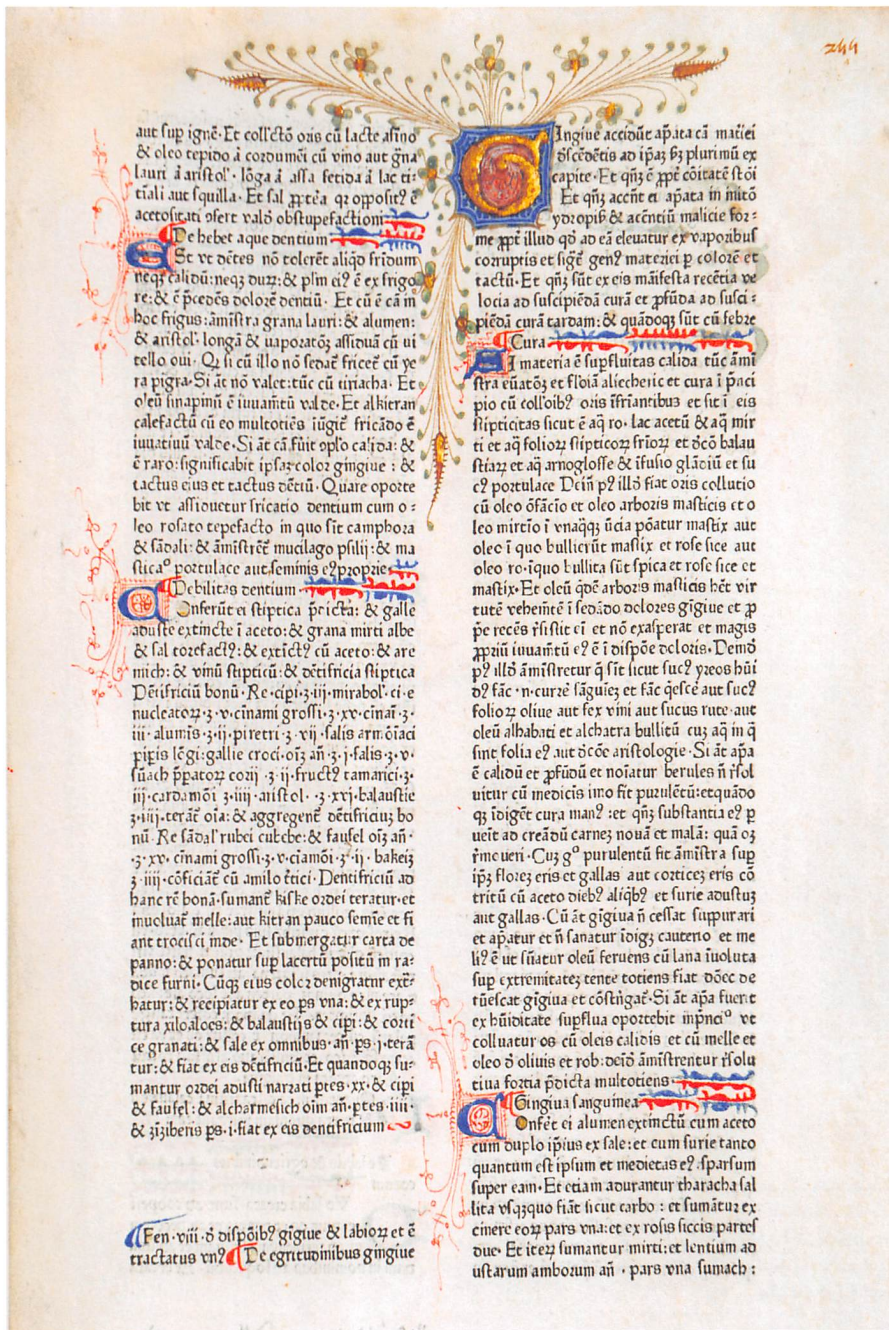 244
aut sup ignē· Et collc̄tō oris cū lacte asīno
& oleo tepido ā cordumēi cū vino aut ḡna
lauri ā aristol· lōga ā assa fetida ā lac ti-
tīali aut squilla· Et sal p̱terea qꝛ opposit⁹ ē
acetositati ɔfert valđ obstupefactioni
De hebet aque dentium
Et vt dētes nō tolerēt aliqđ frīdum
neqꝫ calidū: neqꝫ duꝝ: & plīm ei⁹ ē ex frigo
re: & ē p̄cedēs dolorē dentiū· Et cū ē cā in
hoc frigus: āmīstra grana lauri: & alumen:
& aristol· longā & uaporatōꝫ assiduā cū vi
tello oui· Qꝛ si cū illo nō sedat̄ fricet̄ cū ye
ra pigra· Si āt nō valet: tūc cū tiriacha· Et
oleū sinapinū ē iuuamtū valde· Et alkitran
calefactū cū eo multotiēs iūgit̄ fricādo ē
iuuatiuū valde· Si āt cā fūit ɔplo calida: &
ē raro: significabit ipsaꝫ color gingiue : &
tactus eius et tactus dētiū· Quare oporte
bit vt assiduetur fricatio dentium cum o-
leo rosato tepefacto in quo sīt camphora
& sādali: & āmīstrēt̄ mucilago psilij: & ma
sticaᵒ portulace aut seminis e⁹ proprie
Debilitas dentium
Conferūt ei stiptica p̄ictā: & galle
aduste extincte ī aceto: & grana mirti albe
& sal torefact⁹: & extīct⁹ cū aceto: & are
mich: & vinū stipticū: & dētifricia stiptica
Dētifriciū bonū· Re·cipi·ʒ·iij·mirabol·ci·e
nucleatoꝝ·ʒ·v·cīnami grossi·ʒ·xv·cīnaī·ʒ·
iii·alumīs·ʒ·ij·piretri·ʒ·vij·salis armōiaci
pip̱is lēgi: gallie croci·oīꝫ añ·ʒ·j·salis·ʒ·v·
sūach p̄p̱atoꝝ corij·ʒ·ij·fruct⁹ tamarici·ʒ·
iij·cardamōi ʒ·iiij·aristol·ʒ·xvj·balaustie
ʒ·iiij·terāt̄ oīa: & aggregent̄ dētifriciuꝫ bo
nū· Re sādal' rubei cubebe: & faufel oīꝫ añ·
·ʒ·xv·cīnami grossi·ʒ·v·cīamōi·ʒ·ij·bakeiꝫ
ʒ·iiij·cōficiāt̄ cū amilo t̄tici· Dentifriciū ad
hanc rē bonā·sumant̄ kiske ordei teratur·et
inuoluat̄ melle: aut kitran pauco semīe et fi
ant trocisci inde· Et submergatur carta de
panno: & ponatur sup lacertū positū in ra-
dice furni· Cūqꝫ eius color denigratur ext̄-
hatur: & recipiatur ex eo ps vna: & ex rup-
tura xiloaloes: & balaustijs & cipi: & corti
ce granati: & sale ex omnibus·añ·ps·j·terā
tur: & fiat ex eis dētifriciū· Et quandoqꝫ su-
mantur ordei adusti narrati p̱tes·xx·& cipi
& faufel: & alcharmesich oīm añ·p̱tes·iiij·
& ꝫīꝫiberis ps·i·fiat ex eis dentifricium
Fen·viii·đ dispōib⁹ gīgiue & labioꝝ et ē
tractatus vn⁹ De egritudinibus gingiue
GIngiue accidūt ap̄ata cā matiei
đscēdētis ad ip̄aꝫ sꝫ plurimū ex
capite· Et qn̄ꝫ ē p̱pt̄ cōitatē stōi
Et qn̄ꝫ accn̄t ei ap̄ata in initō
ydropis & acētiū malicie for-
me p̱pt̄ illud qđ ad eā eleuatur ex vaporibus
corruptis et sigt̄ gen⁹ materiei p̱ colorē et
tactū· Et qn̄ꝫ sūt ex eis māifesta recētia ve
locia ad suscipiēdā curā et p̱fūda ad susci-
piēdā curā tardam: & quādoqꝫ sūt cū febre
Cura
SI materia ē supfluitas calida tūc āmī
stra euātōꝫ et flōiā aliecheric et cura ī p̄nci
pio cū colloīb⁹ oris īfriantibuꝫ et sit ī eis
stipticitas sicut ē aq̄ ro·lac acetū & aq̄ mir
ti et aq̄ folioꝝ stipticoꝝ frīoꝝ et đcō balau
stiaꝝ et aq̄ arnoglosse & īfusio glādiū et su
c⁹ portulace Deīn p⁹ illđ fiat oris collutio
cū oleo ōfācio et oleo arboris masticis et o
leo mirtīo ī vnaqꝫ ūcia pōatur mastix aut
oleo ī quo bullierūt mastix et rose sice aut
oleo ro·īquo bullita sūt spica et rose sice et
mastix· Et oleū qđē arboris masticis hēt vir
tutē vehemētē ī sedādo dolores gīgiue et p̱
p̱e recēs r̄sistit eī et nō exasperat et magis
p̱priū iuuamtū e⁹ ē ī dispōe doloris· Demđ
p⁹ illđ āmīstretur q̄ sīt sicut suc⁹ yreos hūi
đ⁹ fāc·n·currē sāguieꝫ et fāc qescē aut suc⁹
folioꝝ oliue aut fex vini aut sucus rute·aut
oleū alhabati et alchatra bullitū cuꝫ aq̄ in q̄
sint folia e⁹ aut đcōe aristologie· Si āt ap̄a
ē calidū et p̱fūdū et noīatur berules n̄ r̄sol
uitur cū medicīs imo fit purulētū: et quādo
qꝫ īdigēt cura man⁹: et qn̄ꝫ substantia e⁹ p̱
ueīt ad creādū carneꝫ nouā et malā: quā oꝫ
r̄mcueri· Cuꝫ gᵒ purulentū fit āmīstra sup
ip̄ꝫ floreꝫ eris et gallas aut corticeꝫ eris cō
tritū cū aceto dieb⁹ aliq̄b⁹ et surie adustuꝫ
aut gallas· Cū āt gīgiua n̄ cessat suppurari
et ap̄atur et n̄ sanatur īdigꝫ cauterio et me
li⁹ ē ut sūatur oleū feruens cū lana īuoluta
sup extremitateꝫ tente totiens fiat dōec de
tūescat gīgiua et cōstīgat̄· Si āt ap̄a fuerit
ex hūiditate supflua oportebit inp̄nciᵒ vt
colluatur os cū oleis calidis et cū melle et
oleo đ oliuis et rob: deīđ āmīstrentur r̄solu
tiua fortia p̄dicta multotiens
Gingiua sanguinea
COnfēt ei alumen extinctū cum aceto
cum duplo ip̄ius ex sale: et cum surie tanto
quantum est ipsum et medietas e⁹·sparsum
super eam· Et etiam adurantur tharacha sal
lita vsqꝫquo fiāt sicut carbo : et sumātur ex
cinere eoꝝ pars vna: et ex rosis siccis partes
due· Et iteꝝ sumantur mirti: et lentium ad
ustarum amborum añ·pars vna sumach :